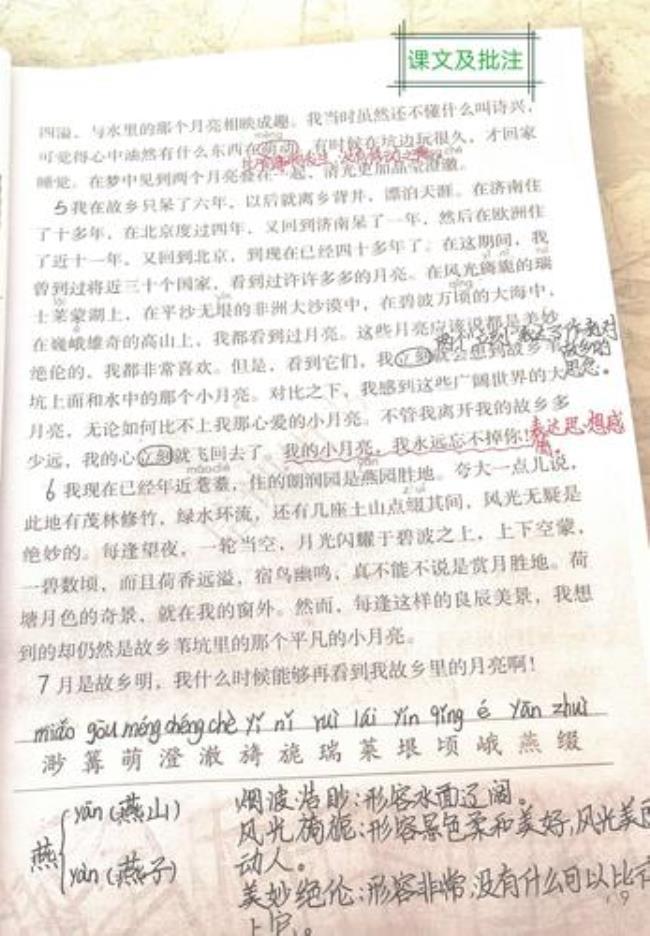 课文及批注
四溢，与水里的那个月亮相映成趣。我当时虽然还不懂什么叫诗兴，
méng
可觉得心中油然有什么东西在萌动。有时候在坑边玩很久，才回家
睡觉。在梦中见到两个月亮叠在一起，清光更加晶莹澄澈。
5我在故乡只呆了六年，以后就离乡背井，漂泊天涯。在济南住
了十多年，在北京度过四年，又回到济南呆了一年，然后在欧洲住
了近十一年，又回到北京，到现在已经四十多年了。在这期间，我
曾到过将近三十个国家，看到过许许多多的月亮。在风光旖旎的瑞
士莱蒙湖上，在平沙无垠的非洲大沙漠中，在碧波万顷的大海中，
在巍峨雄奇的高山上，我都看到过月亮。这些月亮应该说都是美妙
绝伦的，我都非常喜欢。但是，看到它们，我立刻就会想到故乡
故乡的
思念。
坑上面和水中的那个小月亮。对比之下，我感到这些广阔世界的大
月亮，无论如何比不上我那心爱的小月亮。不管我离开我的故乡多
少远，我的心立刻就飞回去了。我的小月亮，我永远忘不掉你！
表达思想感情。
mào dié
6我现在已经年近耄耋，住的朗润园是燕园胜地。夸大一点儿说，
此地有茂林修竹，绿水环流，还有几座土山点缀其间，风光无疑是
绝妙的。每逢望夜，一轮当空，月光闪耀于碧波之上，上下空蒙，
一碧数顷，而且荷香远溢，宿鸟幽鸣，真不能不说是赏月胜地。荷
塘月色的奇景，就在我的窗外。然而，每逢这样的良辰美景，我想
到的却仍然是故乡苇坑里的那个平凡的小月亮。
7月是故乡明，我什么时候能够再看到我故乡里的月亮啊！
miǎo gōu méng chéng chè yǐ nǐ ruì lái yín qǐng é yān zhuì
渺 篝 萌 澄 澈 旖 旎 瑞 莱 垠 顷 峨 燕 缀
燕
yān（燕山）
yàn（燕子）
烟波浩渺：形容水面辽阔。
风光旖旎：形容景色柔和美好，风光美丽
动人。
美妙绝伦：形容非常，没有什么可以比
上它。